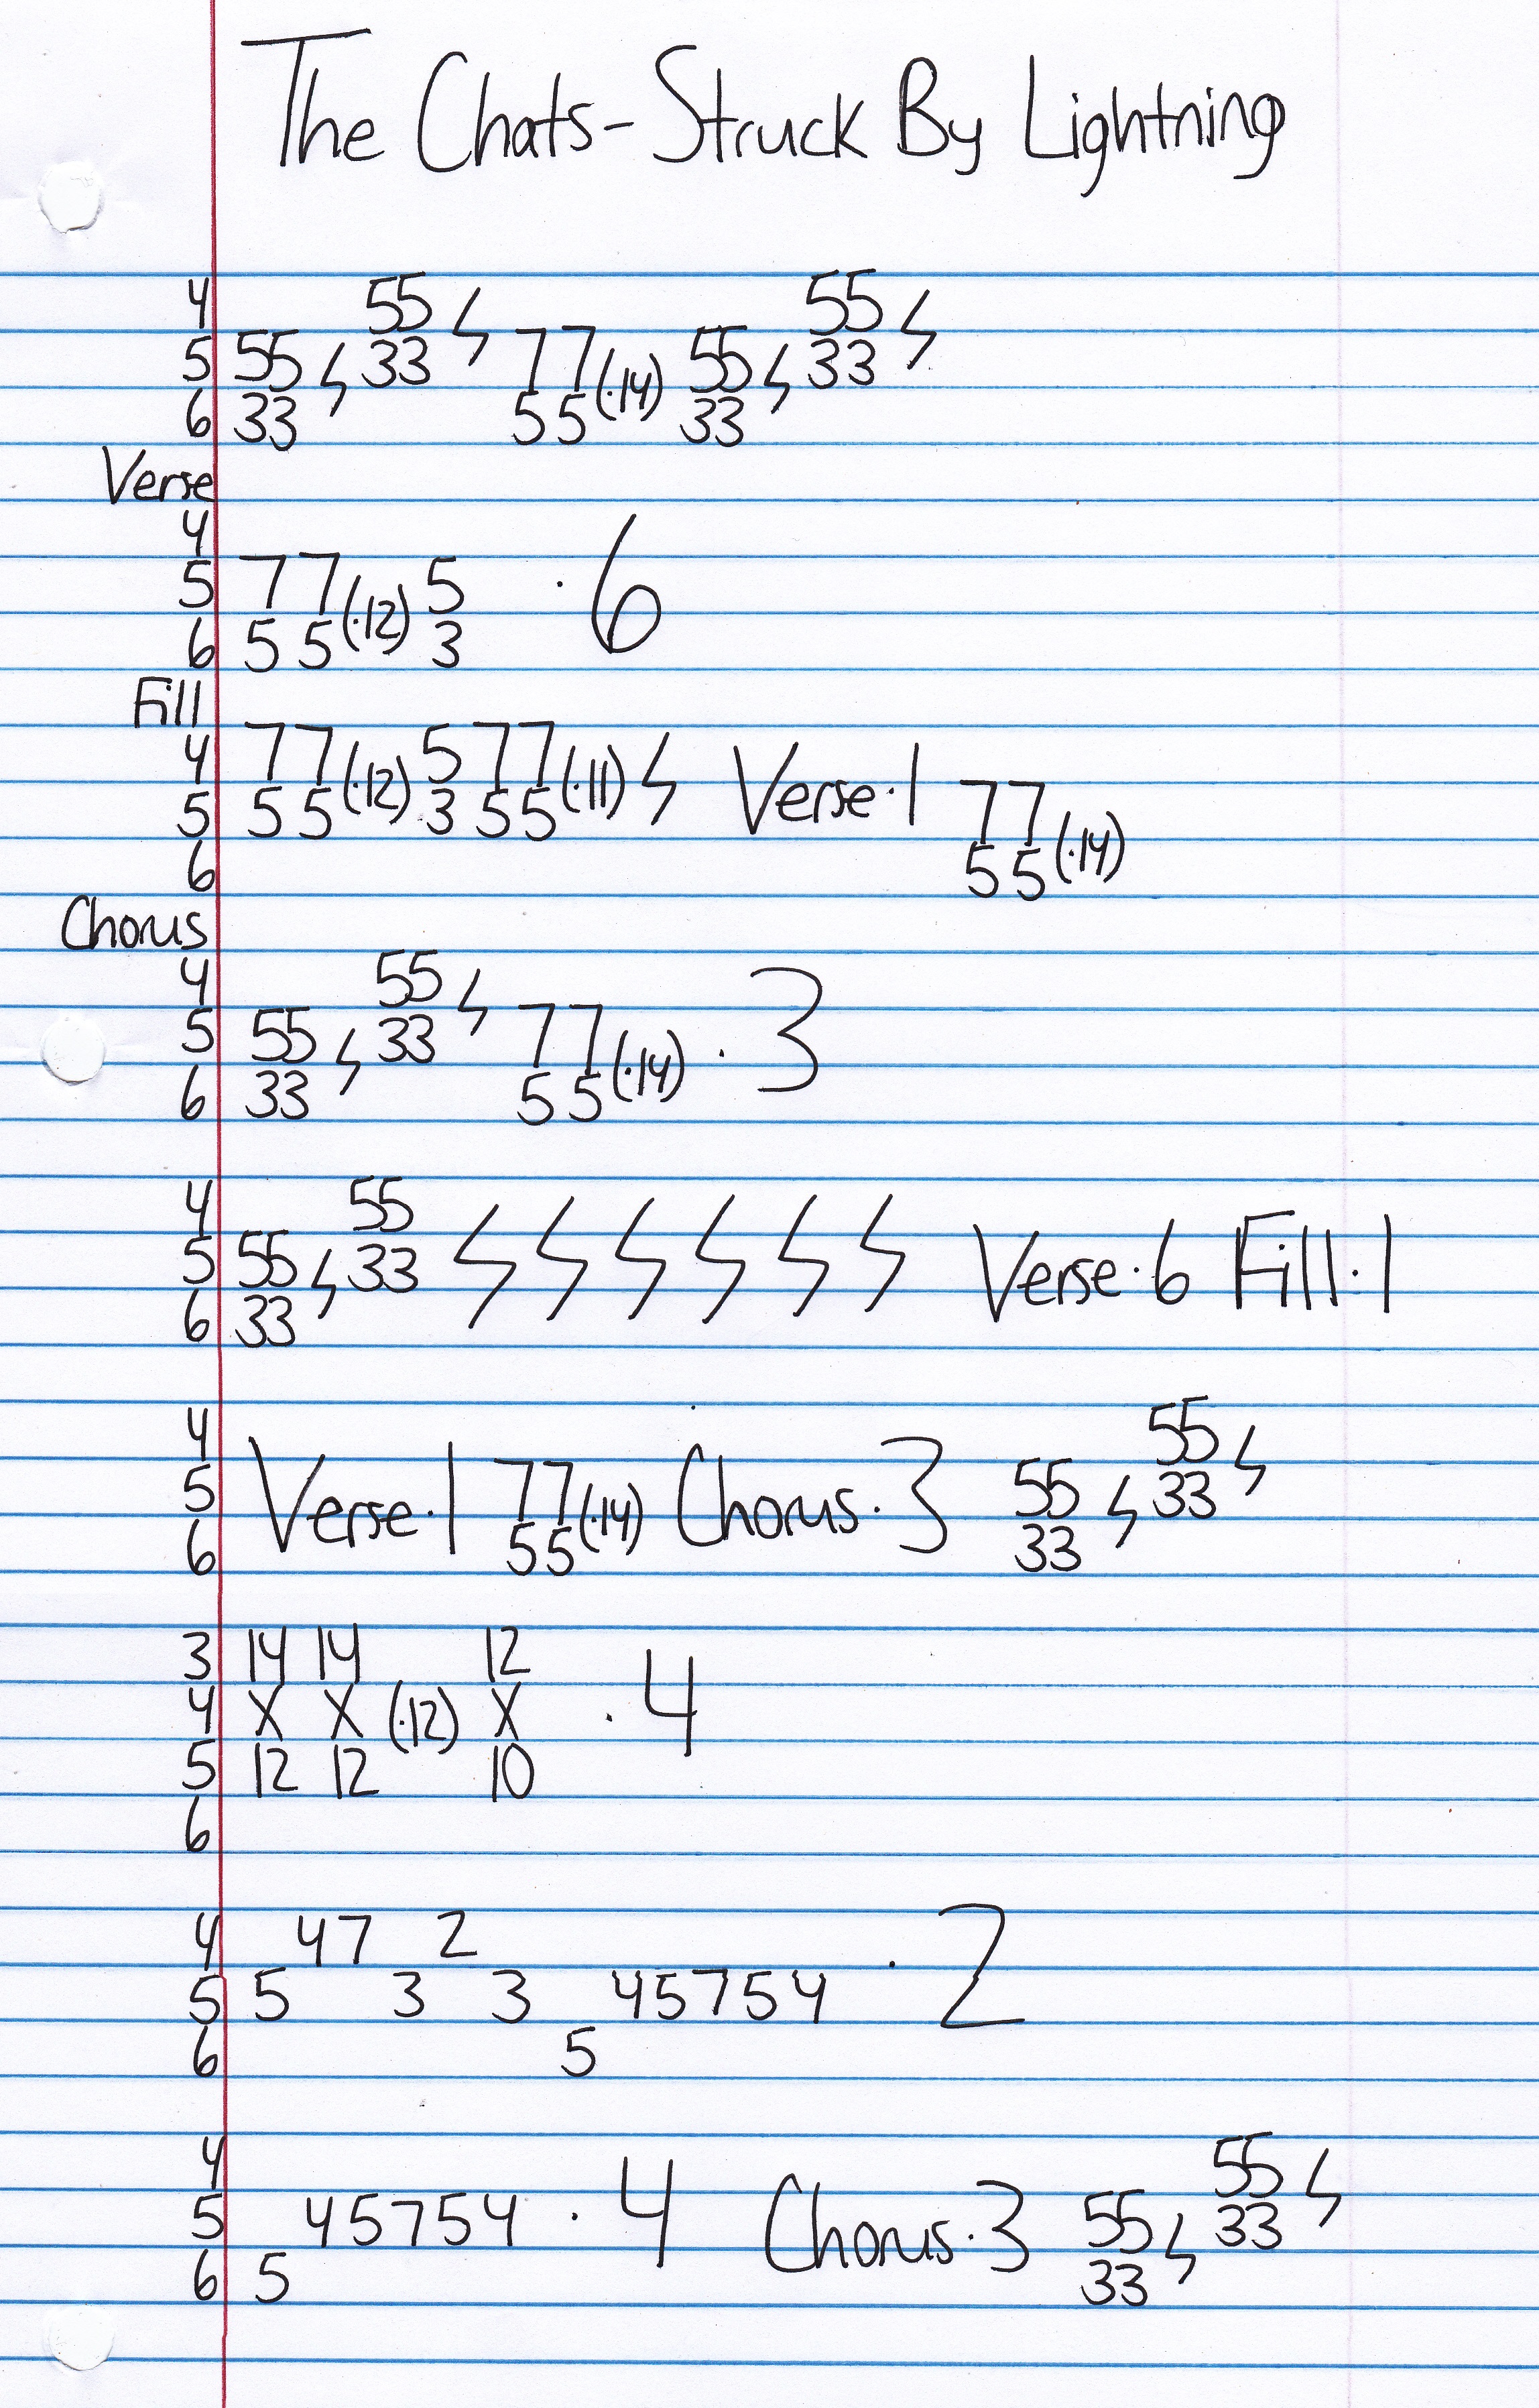 The Chats - Struck By Lightning
4 55 ϟ 55 ϟ
5 55 ϟ 33 77 (·14) 55 ϟ 33
6 33 55 33
Verse
4
5 77 (·12) 5 · 6
6 55 3
Fill
4 77 (·12) 5 77 (·11) ϟ Verse·1
5 55 3 55 77 (·14)
6 55
Chorus
4 55 ϟ
5 55 ϟ 33 77 (·14) · 3
6 33 55
4 55 ϟ ϟ ϟ ϟ ϟ ϟ
5 55 ϟ 33 Verse·6 Fill·1
6 33
4 55 ϟ
5 Verse·1 77 (·14) Chorus·3 55 ϟ 33
6 55 33
3 14 14 12
4 X X (·12) X · 4
5 12 12 10
6
4 47 2
5 5 3 3 45754 · 2
6 5
4 55 ϟ
5 45754 · 4 Chorus·3 55 ϟ 33
6 5 33